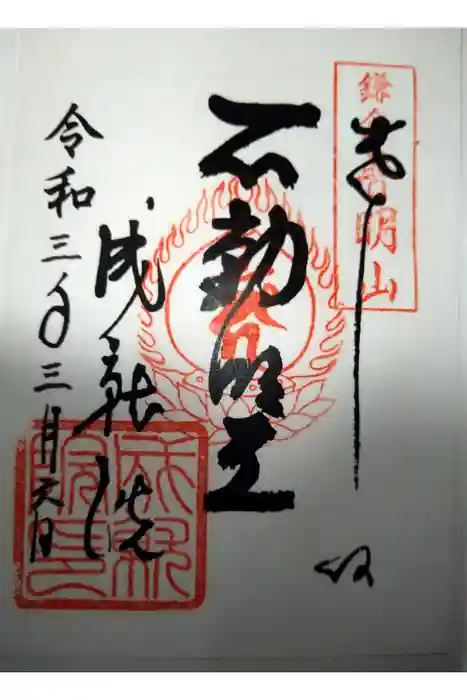 奉拝
鎌倉阿明山
不動明王
成就院
令和三年三月六日